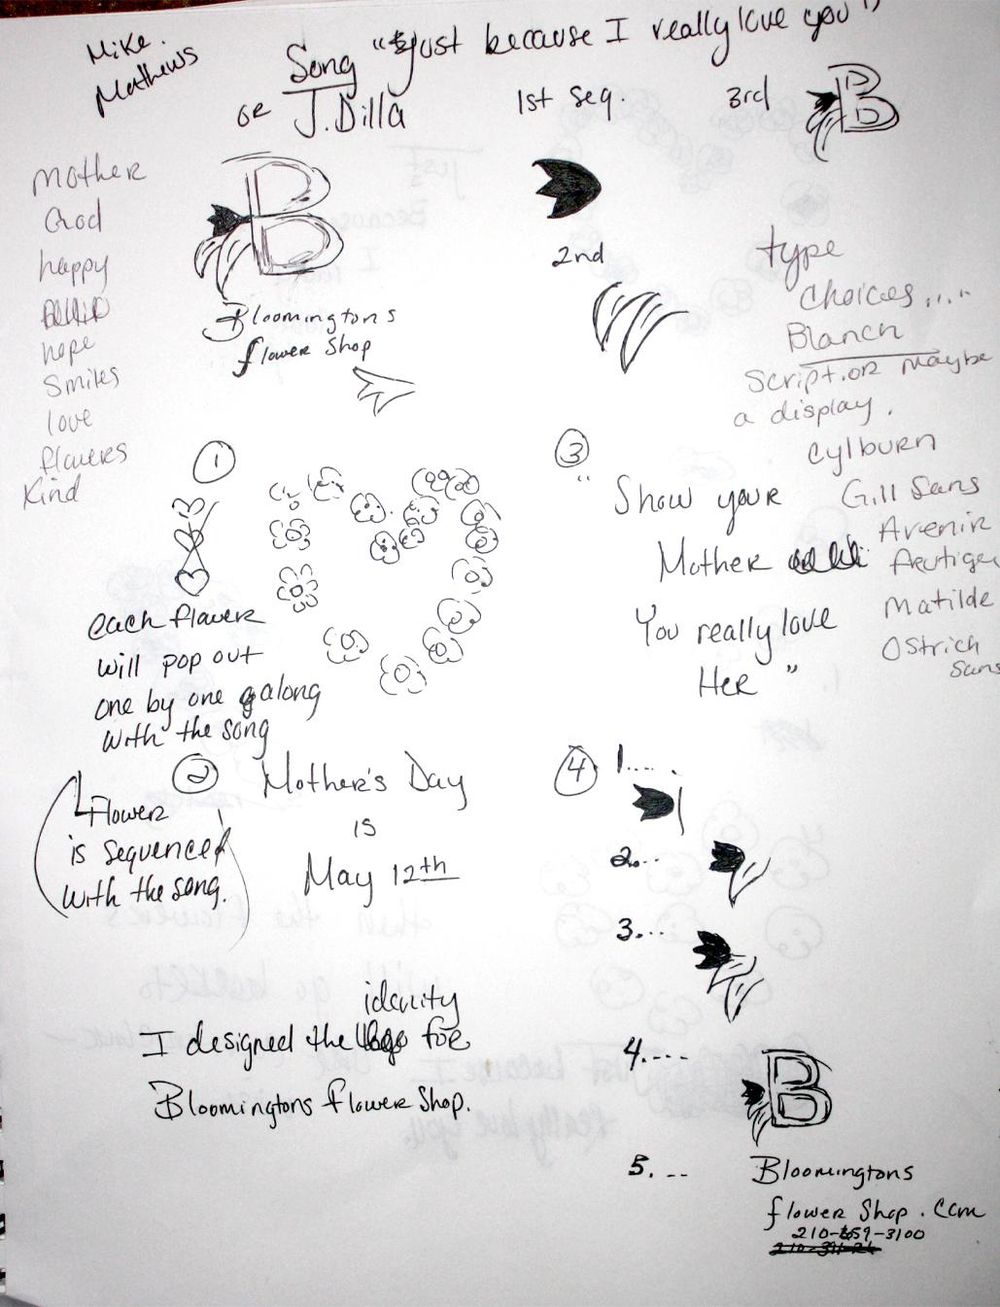 Mike
Mathews
Song "Just because I really love you"
or J.Dilla
1st seq.
3rd
B
mother
God
happy
hope
Smiles
love
flowers
Kind
B
Bloomingtons
flower Shop
2nd
type
Choices....
Blanch
Script.or maybe
a display.
Cylburn
Gill Sans
Avenir
Frutiger
Matilde
Ostrich
Sans
1
each flower
will pop out
one by one along
with the song
3
"Show your
Mother
You really love
Her"
2
Mother's Day
is
May 12th
Flower
is sequenced
with the song.
4
1....
2...
3...
4....
B
5...
Bloomingtons
flower Shop.com
210-659-3100
identity
I designed the for
Bloomingtons flower Shop.